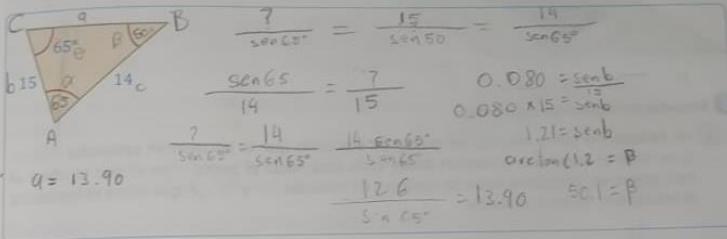 C a B
65° θ β 50°
b 15 α 14 c
65
A
a = 13.90
?/sen65° = 15/sen50 = 14/sen65°
sen65/14 = ?/15
?/sen65° = 14/sen65° 14 sen65°/sen65
12.6/sen65° = 13.90
0.080 = senb/15
0.080 x 15 = senb
1.21 = senb
arctan(1.2 = β
50.1 = β